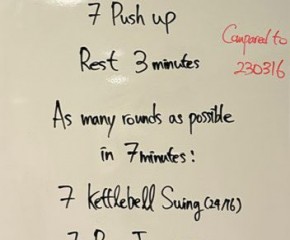 7 Push up
Compared to
230316
Rest 3 minutes
As many rounds as possible
in 7 minutes:
7 Kettlebell Swing (24/16)
7